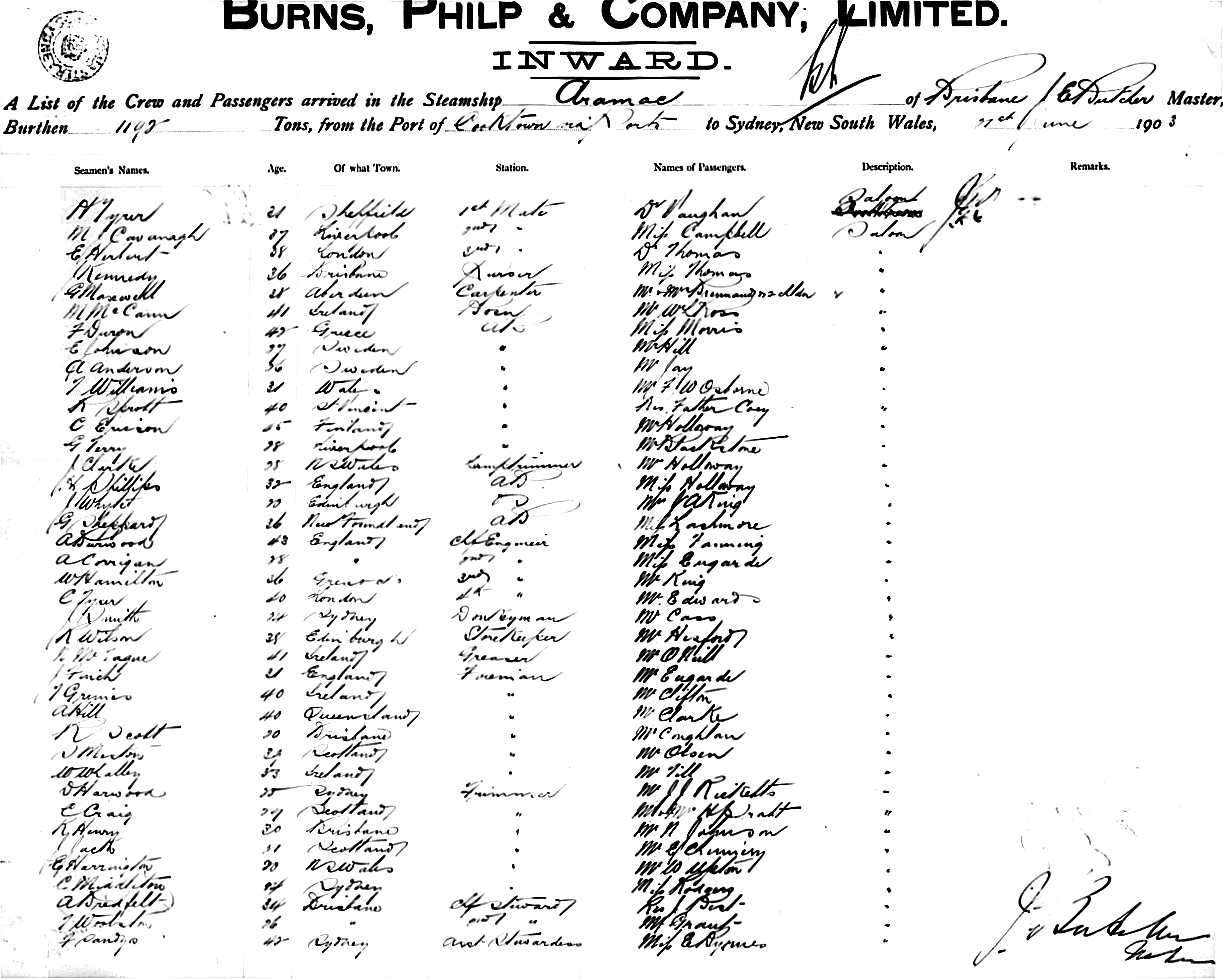 BURNS, PHILP & COMPANY, LIMITED.
INWARD.
A List of the Crew and Passengers arrived in the Steamship Aramac of Brisbane J E Butcher Master,
Burthen 1192 Tons, from the Port of Cooktown via Ports to Sydney, New South Wales, 21st June 1903
Seamen's Names. Age. Of what Town. Station. Names of Passengers. Description. Remarks.
H Tyrer 31 Sheffield 1st Mate Dr Vaughan Saloon
M J Cavanagh 37 Liverpool 2nd " Miss Campbell Saloon
E Herbert 38 London " Dr Thomas "
J Kennedy 36 Brisbane Purser Miss Thomas "
G Maxwell 28 Aberdeen Carpenter Mr & Mrs "
M McCann 41 Ireland Bosn Mr W Ross "
F Duron 42 Greece AB Miss Morris "
E Johnson 37 Sweden " Mr Hill "
A Anderson 36 Sweden " Mr Jay "
T Williams 31 Wales " Mr F W Osborne "
R Sprott 40 St Vincent " Rev. Father Coey "
C Ericson 45 Finland " Mr Holloway "
G Terry 28 Liverpool " Mr Blackstone "
J Clarke 25 N S Wales Lamptrimmer Mr Holloway "
H Phillips 32 England AB Miss Holloway "
J Whyte 23 Edinburgh Mrs J A King "
G Sheppard 36 Newfoundland AB Miss Lashmore "
A Durwood 43 England Chf Engineer Miss Fanning "
A Corrigan 28 " 2nd " Miss Eugarde "
W Hamilton 36 " Mr King "
C Tyrer 40 London 4th " Mr. Edwards "
J Smith 24 Sydney Donkeyman Mr Cass "
R Wilson 38 Edinburgh Storekeeper Mr Hesford "
McTague 41 Ireland Greaser Mr O'Neill "
J Finch 31 England Fireman Mr Eugarde "
T Grimes 40 Ireland " Mr Clifton "
A Hill 40 Queensland " Mr Clarke "
R Scott 30 Brisbane " Mr Coughlan "
Scotland " Mr Olsen "
W Whalley 33 Ireland " Mr Till "
D Harwood 25 Sydney Trimmer Mr J J Ricketts "
E Craig 29 Scotland " Mr & Mrs H Pratt "
R Henry 30 Brisbane " Mr N Jamson "
J Jack 31 Scotland " Mr C Chenery "
G Harrington 20 N S Wales " Mr W Upton "
C Middleton 24 Sydney Miss Rodgers "
A Bredfelt 34 Brisbane Chf Steward Rev J Best "
T Woolston 26 " 2nd " Mr Grant "
42 Sydney Asst Stewardess Miss E Byrnes "